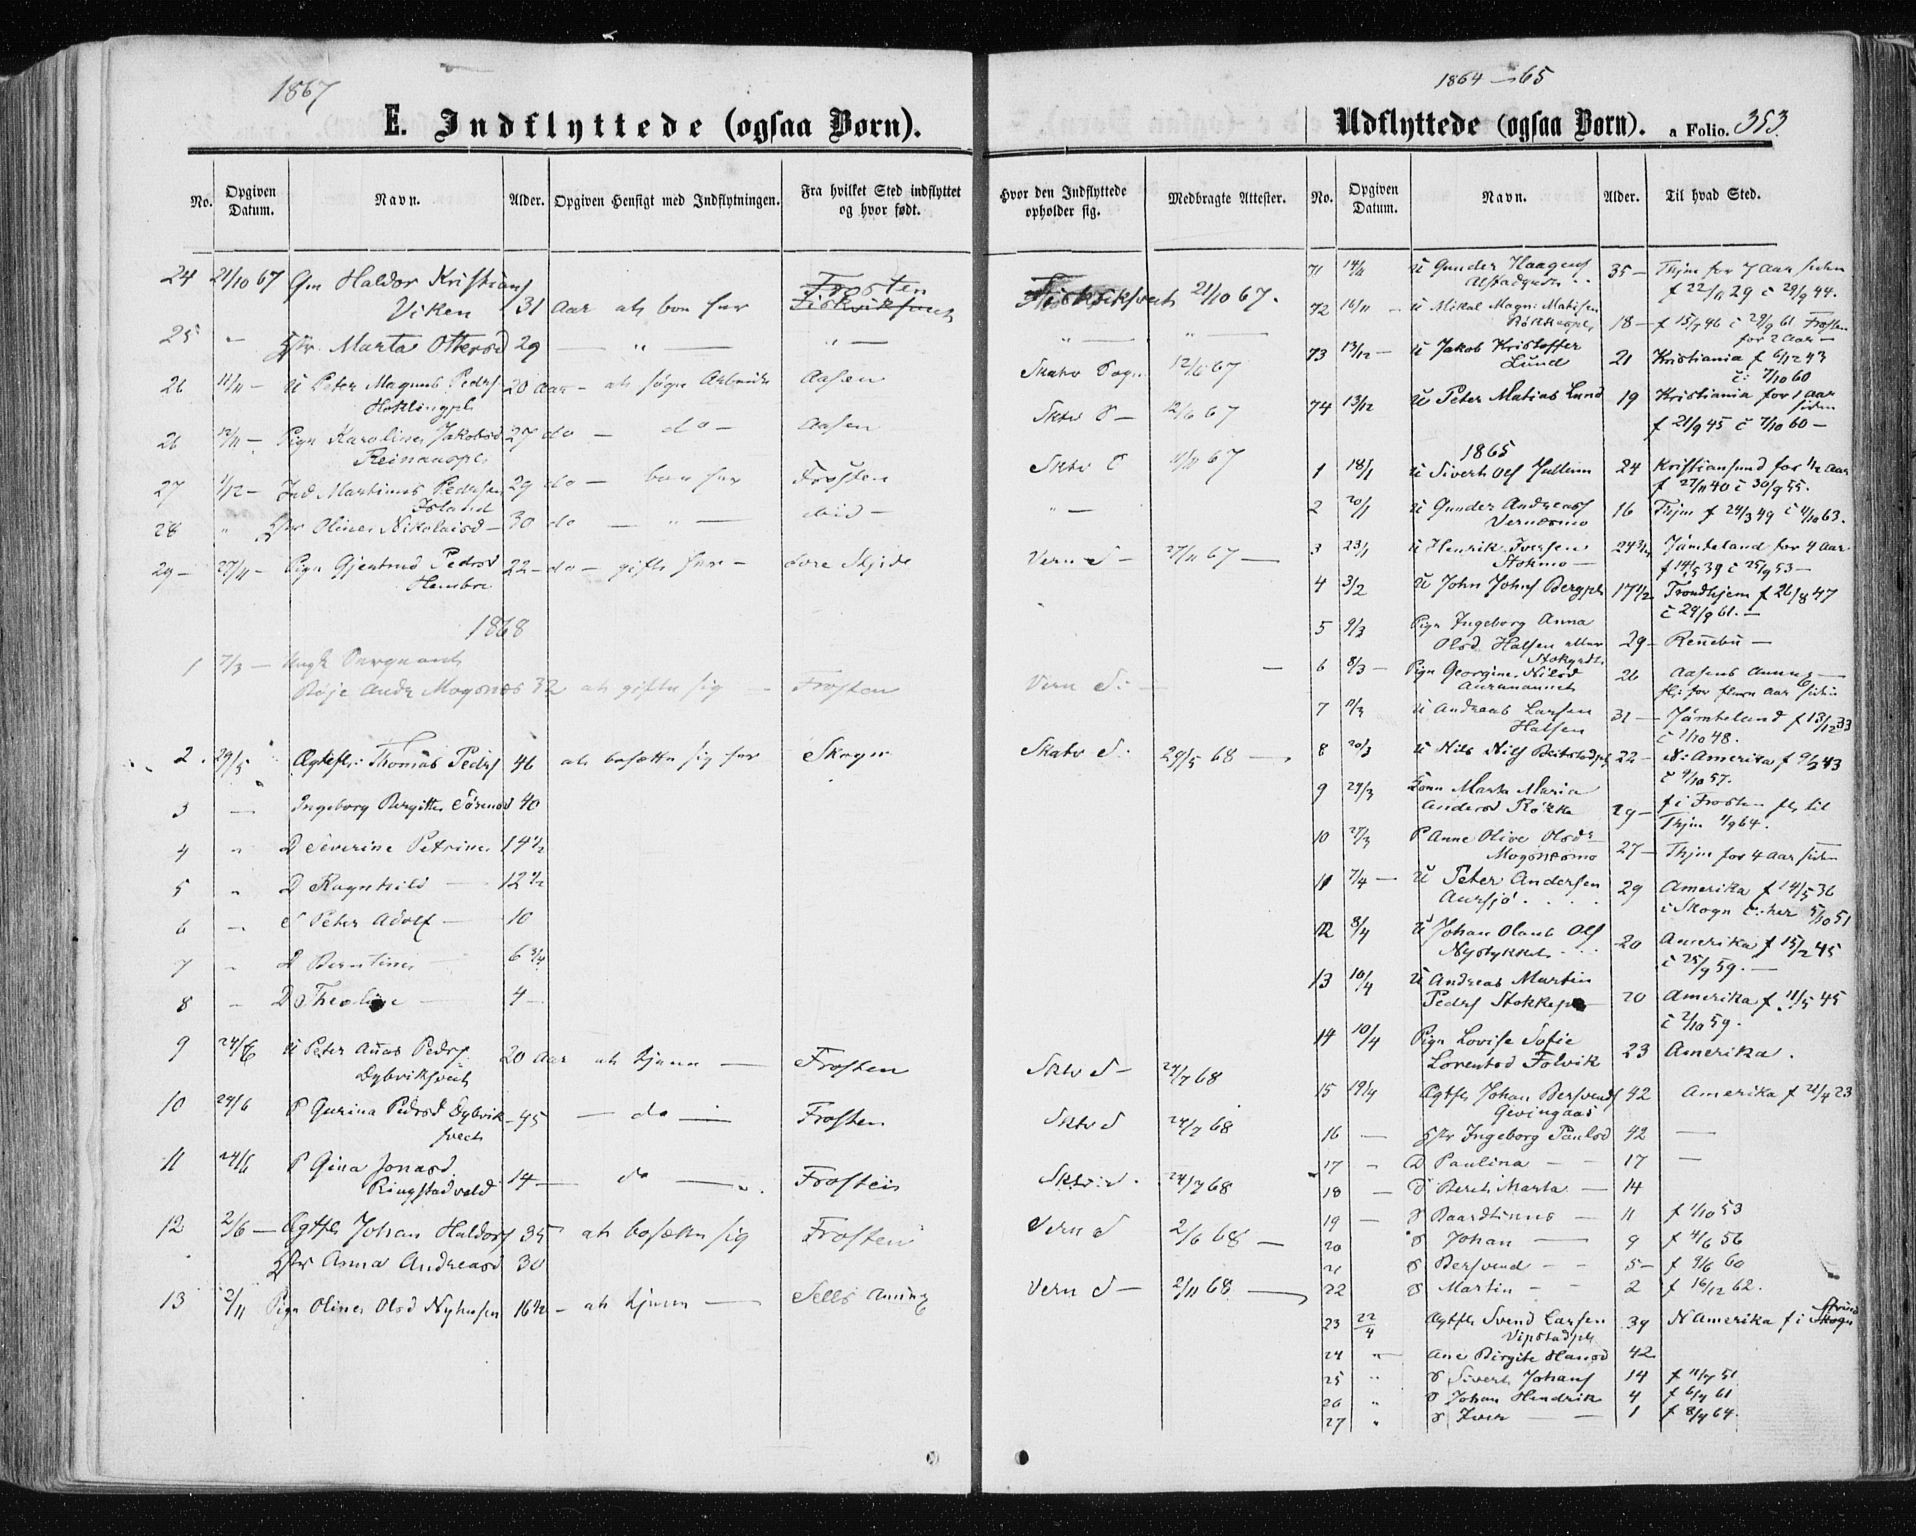 1867
E. Indflyttede (ogsaa Børn).
No. Opgiven Datum. Navn. Alder. Opgiven Hensigt med Indflytningen. Fra hvilket Sted indflyttet og hvor født. Hvor den Indflyttede opholder sig. Medbragte Attester.
24 21/10 67 Gm Haldor Kristians Frosten
Viken 31 Aar at bo her 21/10 67.
25 - Hstr. Marta Ottersd 29 — " — " — " —
26 11/11 - U Peter Magnus Pedrs 20 Aar - at søge Arbeide Aasen Skatv Sogn 12/6 67
Hoklingpl
26 12/11 - Pige Karoline Jakobsd 27 do - do - Aasen Skatv S - 12/6 67
Reinaaspl
27 1/12 - Ind Martinus Pedersen 29 do - boe her Frosten Skatv S 11/11 67
28 " Hstr Oline Nikolaisd - 30 do - " - ibid - " -
29 - 27/11 - Pige Gjertrud Pedrsd 22 - do - gifte her - Vern S - 27/11 67 —
Hembre
1868
1 7/3 - Ungk
32 at gifte sig - Frosten Vern S: -
2. 29/5 Ægtefl: Thomas Pedrs 46 at bosætte sig her Skogn Skatv S: 29/5 68 —
3 — Ingeborg Birgitte 40
4 " D Severine Petrine 14 1/2
5 " D Ragnhild — 12 1/2
6 - S Peter Adolf - 10
7 - D Berntine 6 3/4
8 - D Theoline — 4 -
9 24/6 U Peter Pedrs 20 Aar at tjene — Frosten Skatv S - 24/7 68
Dybviksveet
10 24/6 P Gurina Pedrsd Dybvik 45 — do — Frosten Skatv S 24/7 68
sveet
11 24/6 P Gina Jonasd 14 — do — Frosten Skatv S. 24/7 68
Ringstadvald
12 2/6 — Ægtfl Johan Haldors 35 at bosætte sig Frosten Vern S 2/6 68 —
Hstr Anna Andreasd 30
13 2/11 Pige Oline Olsd 16 1/2 - at tjene — Selbo Vern S - 2/11 68 —
1864 - 65
Udflyttede (ogsaa Børn). a Folio. 353.
No. Opgiven Datum. Navn. Alder. Til hvad Sted.
71 14/11 U Gunder Haagens 35 - Thjm for 7 Aar siden
f 22/11 29 c 29/9 44.
72 16/11 - U Mikal Magn: Matisen 18 - f 15/7 46 c 29/9 61 Frosten
for 2 Aar -
73 13/12 - U Jakob Kristoffer 21 Kristiania f 6/12 43
Lund c: 7/10 60
74 13/12 U Peter Matias Lund 19 Kristiania for 1 Aar
siden
f 21/9 45 c 7/10 60 -
1865
1 18/1 U Sivert Ols 24 Kristiansund for 1/2 Aar
f 27/11 40 c 30/9 55.
2 20/1 U Gunder Andreas 16 Thjm f 24/3 49 c 4/10 63.
Vernesmo
3 23/1 U Henrik Iversen Jämteland for 4 Aar
Stokmo — f 14/5 39 c 25/9 53 -
4 3/2 U John Johns Bergpl 17 1/2 Trondhjem f 26/8 47
c 29/9 61. -
5 9/3 Pige Ingeborg Anna
Olsd Halsen eller 29 - Rennebu -
6 8/3 - Pige Georgine Nilsd 26 Aasens
for flere Aar siden
7 11/3 U Andreas Larsen 31 - Jämteland f 13/12 33
Halsen c 1/10 48.
8 20/3 U Nils Nils 22 - N: Amerika f 9/2 43
c 4/10 57.
9 24/3 Marta Maria f i Frosten fl. til
Andersd Røkke 29 - Thjm 1/9 64.
10 27/3 P Anne Olive Olsd
27 - Thjm for 4 Aar siden
11 7/4 — U Peter Andersen 29 Amerika f 14/5 36
Aursjö. i Skogn c: her 5/10 51
12 8/4 U Johan Olaus Ols 20 Amerika f 15/2 45
Nystykket c 25/9 59. -
13 10/4 U Andreas Martin
Pedrs Stokkepl — 20 Amerika f. 11/5 45
c 2/10 59.
14 10/4 Pige Lovise Sofie
Lorentsd Folvik 23 Amerika.
15 19/4 Ægtfl Johan Bersvends 42 Amerika f 21/4 23
Gevingaas
16 — Hstr Ingeborg Paulsd 42 —
17 " D Paulina — 17 —
18 — D Beret Marta — 14
19 — S Baardtinus — 11 f 1/10 53
20 S Johan — 9 f 4/6 56
21 S Bersvend - 5 - f 9/6 60
22 S Martin - 2 f 16/12 62.
23 22/4 Ægtfl Svend Larsen 39 N Amerika f i
24 " Ane Birgite Hansd 42
25 " S Sivert Johans 14 f 11/7 51
26 " S Johan Hendrik 4 f 6/7 61
27 " S Iver — 1 f 8/7 64.